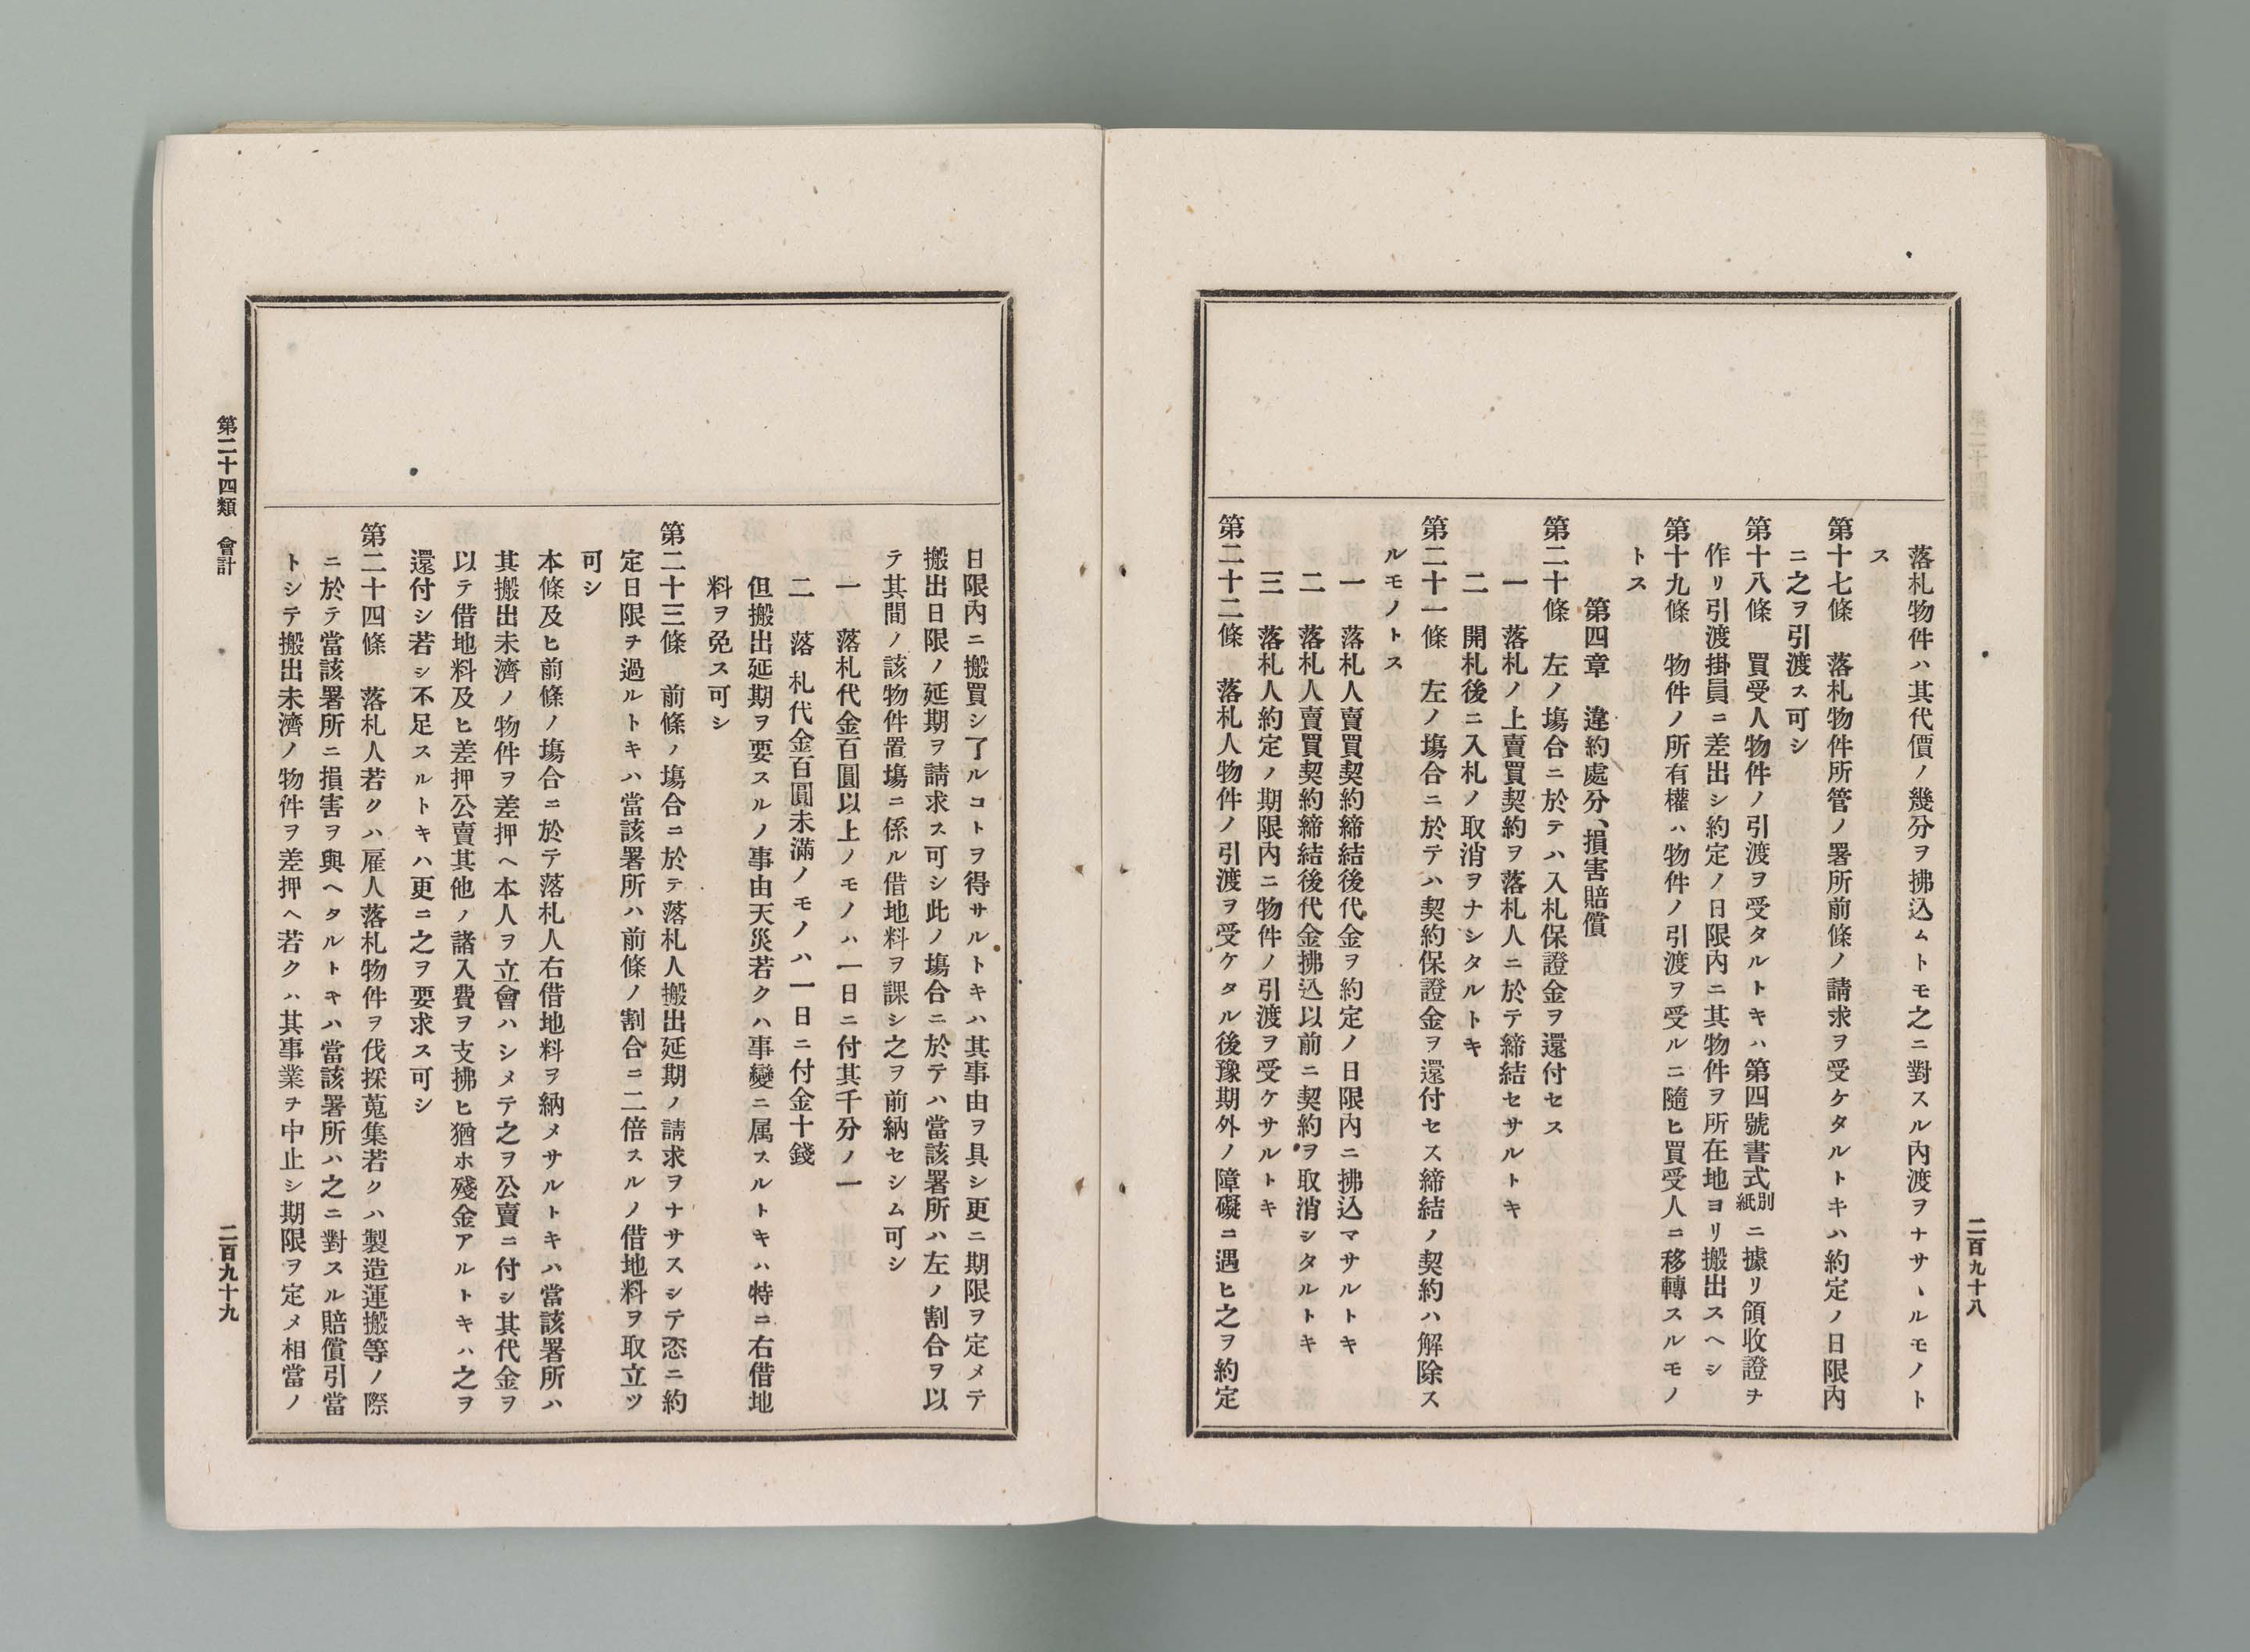 二百九十八
落札物件ハ其代價ノ幾分ヲ拂込ムトモ之ニ對スル內渡ヲナサヽルモノト
ス
第十七條　落札物件所管ノ署所前條ノ請求ヲ受ケタルトキハ約定ノ日限內
ニ之ヲ引渡ス可シ
第十八條　買受人物件ノ引渡ヲ受タルトキハ第四號書式別紙ニ據リ領收證ヲ
作リ引渡掛員ニ差出シ約定ノ日限內ニ其物件ヲ所在地ヨリ搬出スヘシ
第十九條　物件ノ所有權ハ物件ノ引渡ヲ受ルニ隨ヒ買受人ニ移轉スルモノ
トス
第四章　違約處分、損害賠償
第二十條　左ノ塲合ニ於テハ入札保證金ヲ還付セス
一　落札ノ上賣買契約ヲ落札人ニ於テ締結セサルトキ
二　開札後ニ入札ノ取消ヲナシタルトキ
第二十一條　左ノ塲合ニ於テハ契約保證金ヲ還付セス締結ノ契約ハ解除ス
ルモノトス
一　落札人賣買契約締結後代金ヲ約定ノ日限內ニ拂込マサルトキ
二　落札人賣買契約締結後代金拂込以前ニ契約ヲ取消シタルトキ
三　落札人約定ノ期限內ニ物件ノ引渡ヲ受ケサルトキ
第二十二條　落札人物件ノ引渡ヲ受ケタル後豫期外ノ障礙ニ遇ヒ之ヲ約定
日限內ニ搬買シ了ルコトヲ得サルトキハ其事由ヲ具シ更ニ期限ヲ定メテ
搬出日限ノ延期ヲ請求ス可シ此ノ塲合ニ於テハ當該署所ハ左ノ割合ヲ以
テ其間ノ該物件置塲ニ係ル借地料ヲ課シ之ヲ前納セシム可シ
一　落札代金百圓以上ノモノハ一日ニ付其千分ノ一
二　落札代金百圓未滿ノモノハ一日ニ付金十錢
但搬出延期ヲ要スルノ事由天災若クハ事變ニ属スルトキハ特ニ右借地
料ヲ免ス可シ
第二十三條　前條ノ塲合ニ於テ落札人搬出延期ノ請求ヲナサスシテ恣ニ約
定日限ヲ過ルトキハ當該署所ハ前條ノ割合ニ二倍スルノ借地料ヲ取立ツ
可シ
本條及ヒ前條ノ塲合ニ於テ落札人右借地料ヲ納メサルトキハ當該署所ハ
其搬出未濟ノ物件ヲ差押ヘ本人ヲ立會ハシメテ之ヲ公賣ニ付シ其代金ヲ
以テ借地料及ヒ差押公賣其他ノ諸入費ヲ支拂ヒ猶ホ殘金アルトキハ之ヲ
還付シ若シ不足スルトキハ更ニ之ヲ要求ス可シ
第二十四條　落札人若クハ雇人落札物件ヲ伐採蒐集若クハ製造運搬等ノ際
ニ於テ當該署所ニ損害ヲ與ヘタルトキハ當該署所ハ之ニ對スル賠償引當
トシテ搬出未濟ノ物件ヲ差押ヘ若クハ其事業ヲ中止シ期限ヲ定メ相當ノ
第二十四類　會計
二百九十九